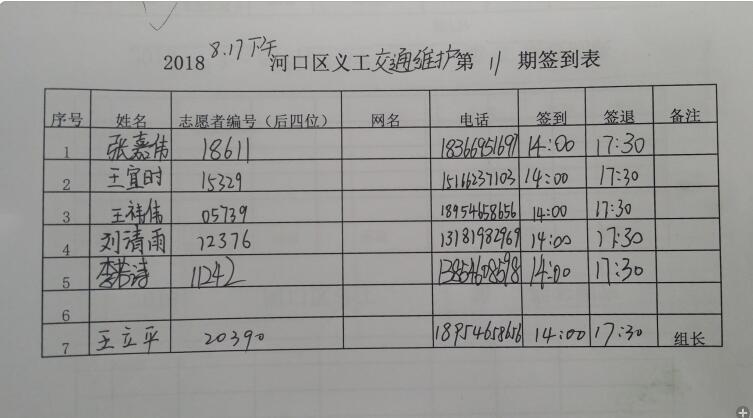 2018 8.17下午 河口区义工交通维护第 11 期签到表
序号 姓名 志愿者编号（后四位） 网名 电话 签到 签退 备注
1 张嘉伟 18611 18366951697 14:00 17:30
2 王宜时 15329 15166237103 14:00 17:30
3 王祎伟 05739 18954658656 14:00 17:30
4 刘清雨 12376 13181982969 14:00 17:30
5 李若诗 11242 14:00 17:30
6
7 王立平 20390 18954658656 14:00 17:30 组长